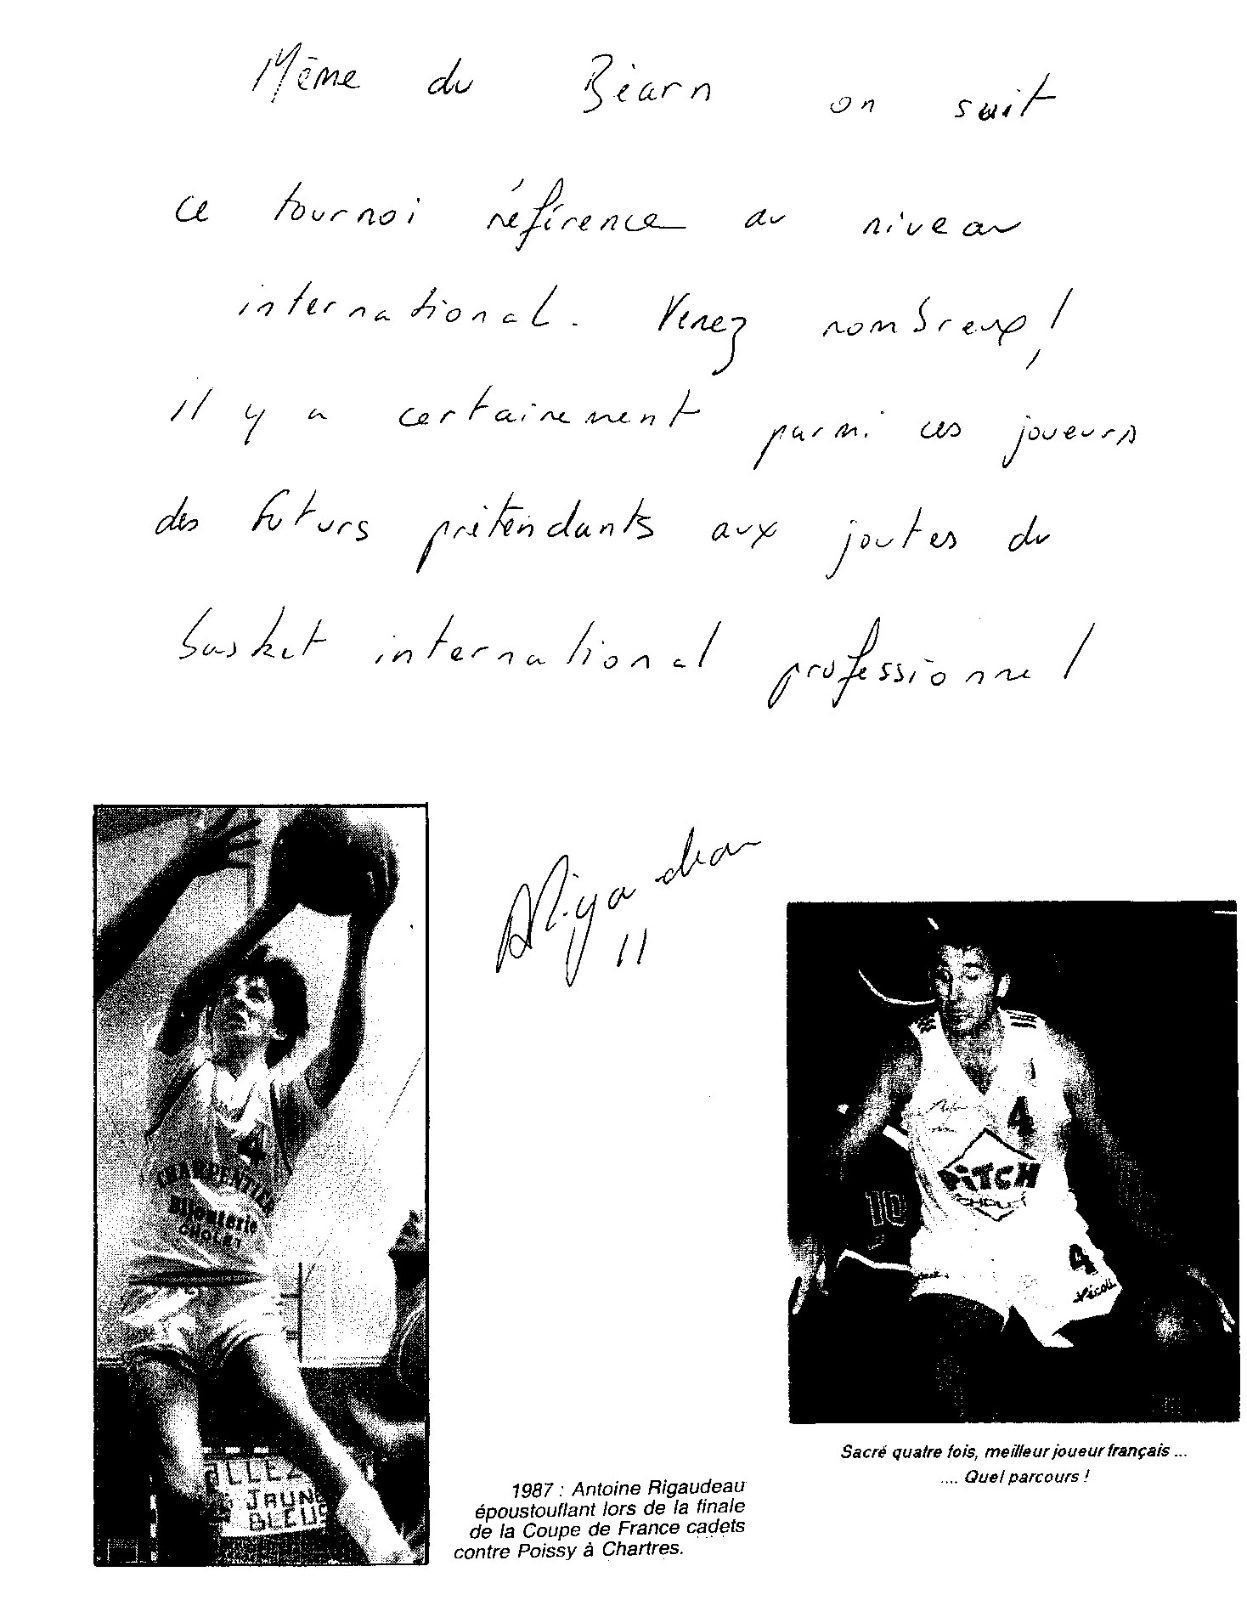 Même du Béarn on suit
ce tournoi référence au niveau
international. Venez nombreux !
il y a certainement parmi ces joueurs
des futurs prétendants aux joutes du
basket international professionnel
ARigaudeau
11
4
CHARPENTIER
Bijouterie
CHOLET
ALLEZ
JAUNE
BLEUS
4
PITCH
CHOLET
10
4
Sacré quatre fois, meilleur joueur français ...
.... Quel parcours !
1987 : Antoine Rigaudeau
époustouflant lors de la finale
de la Coupe de France cadets
contre Poissy à Chartres.